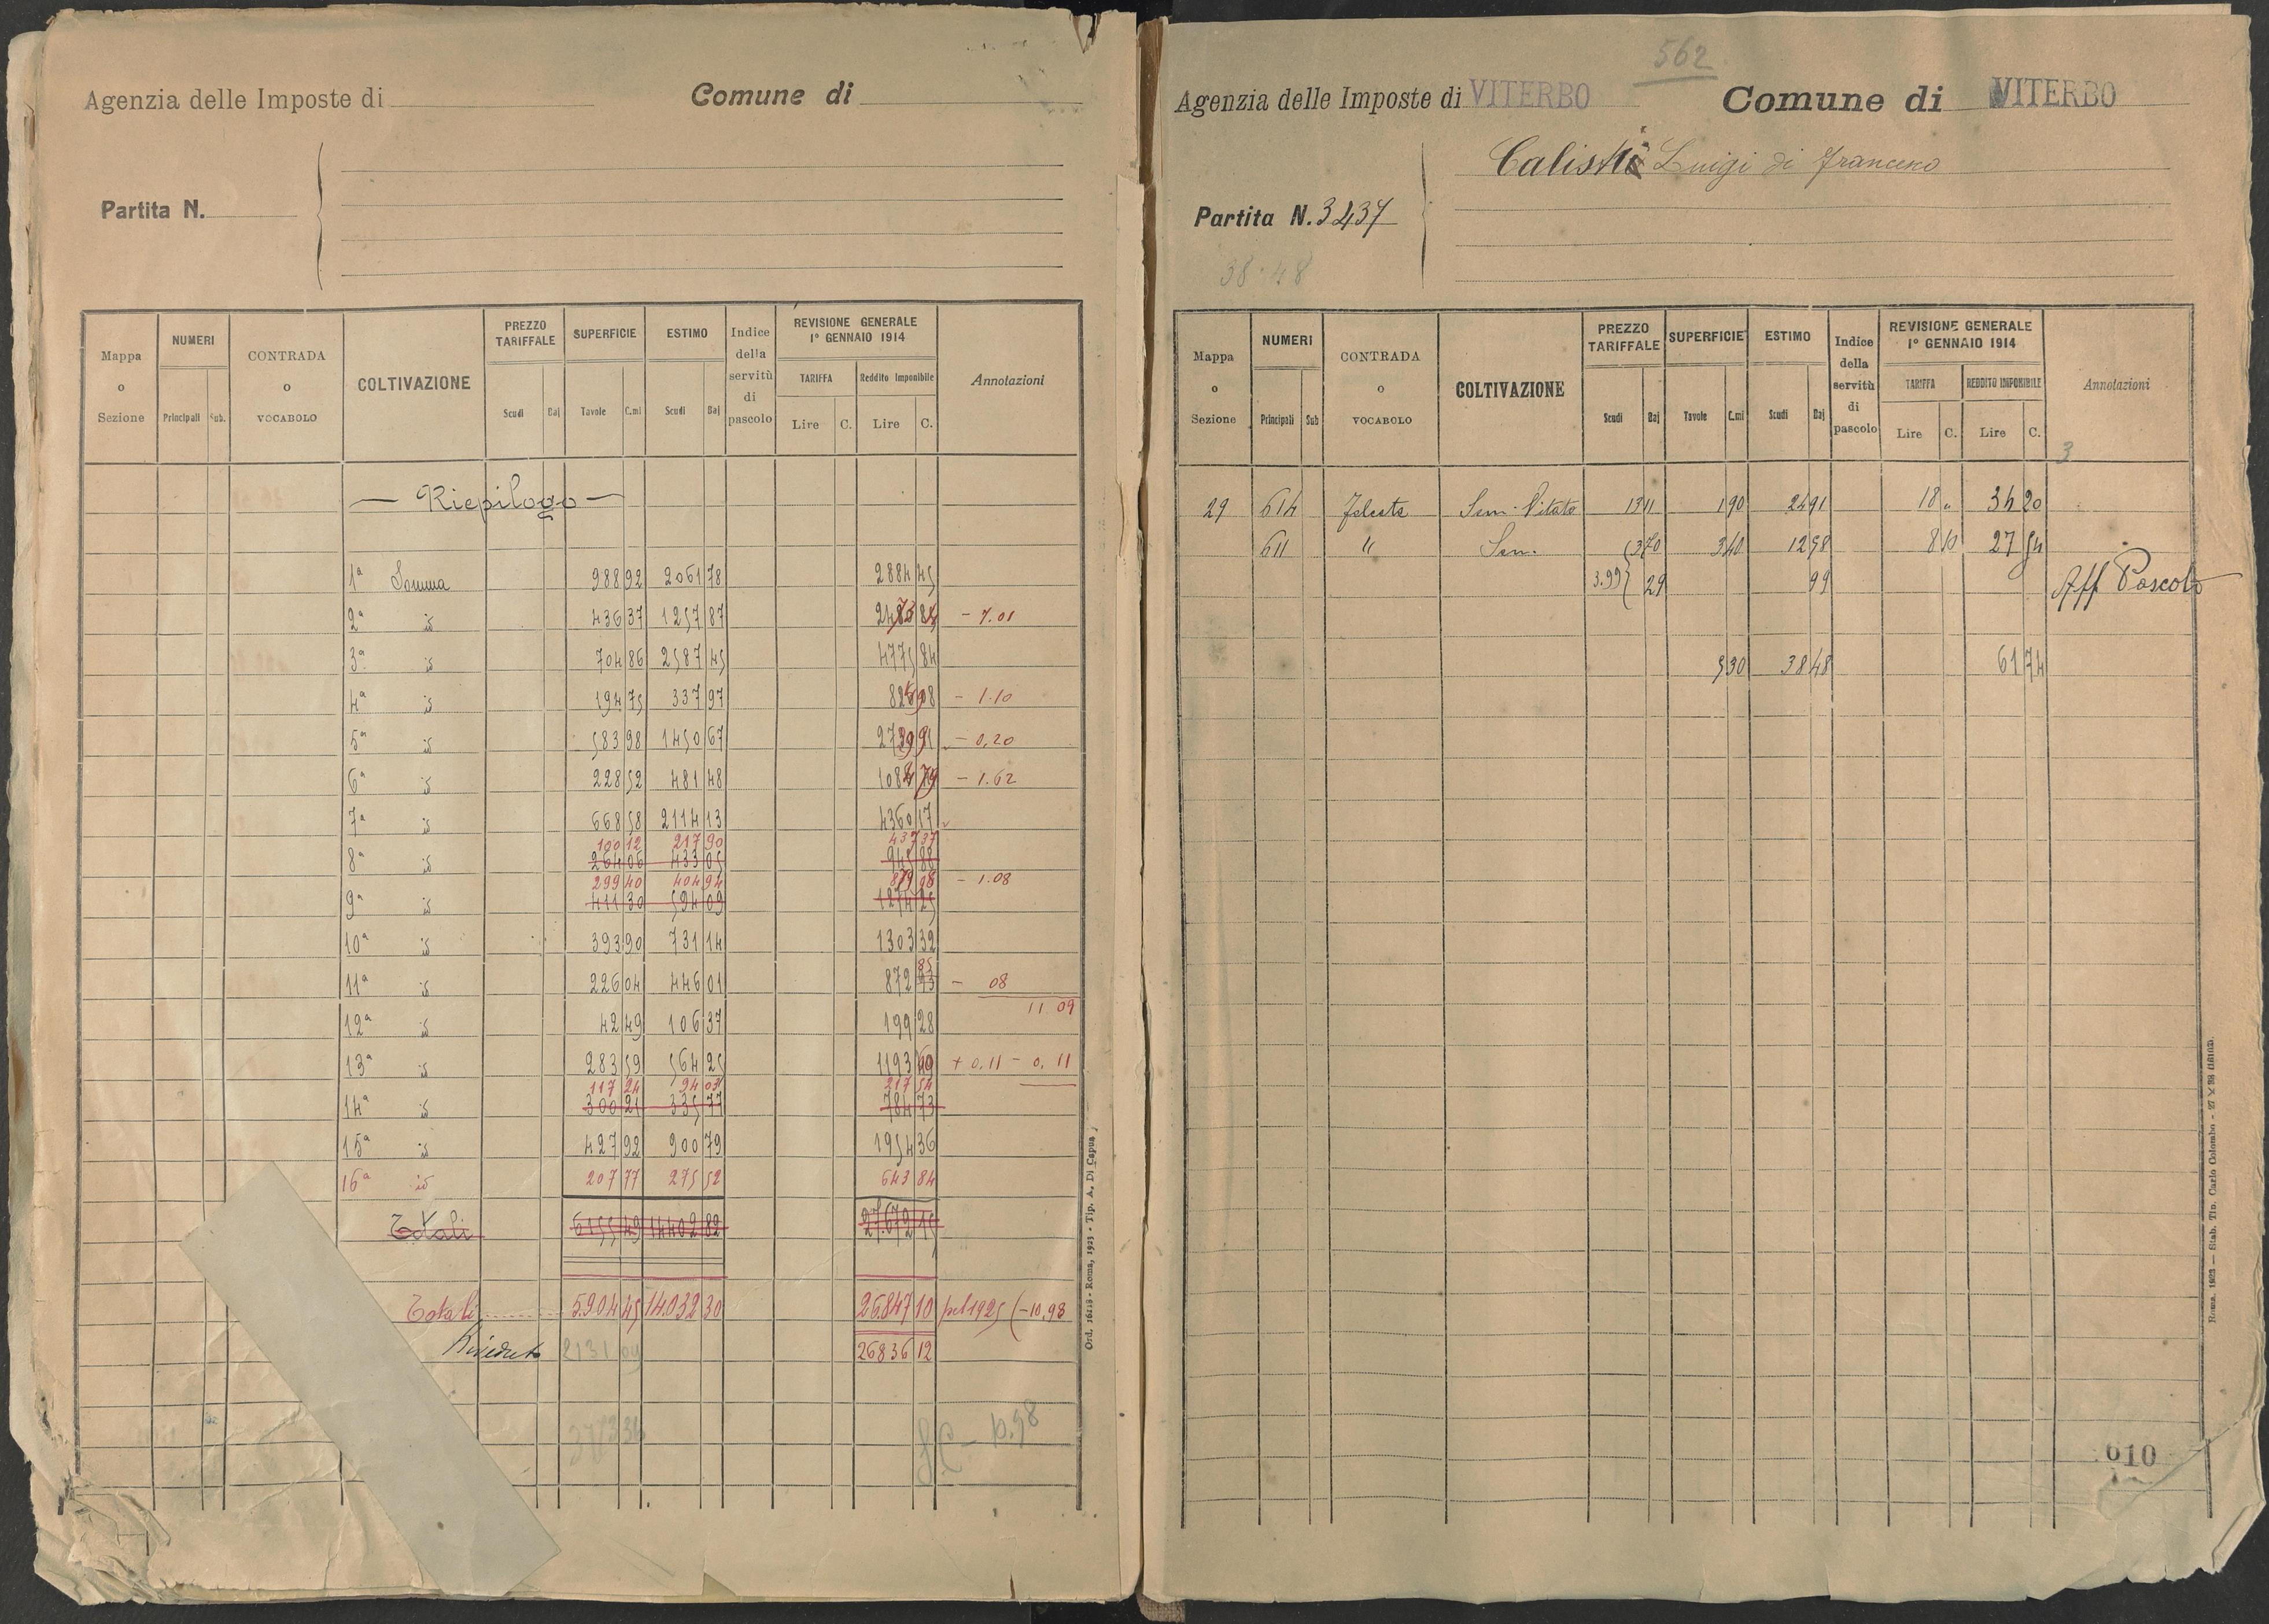 Agenzia delle Imposte di
Comune di
Partita N.
Mappa o Sezione
NUMERI
Principali Sub.
CONTRADA o VOCABOLO
COLTIVAZIONE
PREZZO TARIFFALE
Scudi Baj
SUPERFICIE
Tavole C.mi
ESTIMO
Scudi Baj
Indice della servitù di pascolo
REVISIONE GENERALE 1° GENNAIO 1914
TARIFFA
Lire C.
Reddito Imponibile
Lire C.
Annotazioni
— Riepilogo —
1ª Somma 988 92 2061 78 2884 45
2ª id 436 37 1257 87 84 - 7.01
3ª id 704 86 2587 45 4775 84
4ª id 194 75 337 97 - 1.10
5ª id 583 98 1450 67 - 0,20
6ª id 228 52 481 48 - 1.62
7ª id 668 58 2114 13 4360 17
100 12 217 90 437 37
8ª id 264 06 433 05 945 88
299 40 404 94 98 - 1.08
9ª id 411 30 594 09 1274 25
10ª id 393 90 731 14 1303 32
85
11ª id 226 04 446 01 872 93 - 08
11 09
12ª id 42 49 106 37 199 28
13ª id 283 59 564 25 1193 + 0,11 - 0,11
117 24 94 03 217 54
14ª id 300 21 335 77 784 73
15ª id 427 92 900 79 1954 36
16ª id 207 77 275 52 643 84
Totali 6155 49 14402 82 27.679 15
Totali 5.904 45 14.032 30 26.847 10 pel 1925 (-10,98
2131 09 26836 12
Ord. 16118 - Roma, 1923 - Tip. A. Di Capua
562
Agenzia delle Imposte di VITERBO
Comune di VITERBO
Calisti Luigi di Francesco
Partita N. 3437
38.48
Mappa o Sezione
NUMERI
Principali Sub
CONTRADA o VOCABOLO
COLTIVAZIONE
PREZZO TARIFFALE
Scudi Baj
SUPERFICIE
Tavole C.mi
ESTIMO
Scudi Baj
Indice della servitù di pascolo
REVISIONE GENERALE 1° GENNAIO 1914
TARIFFA
Lire C.
REDDITO IMPONIBILE
Lire C.
Annotazioni
3
29 614 Sem. Vitato 13 11 1 90 24 91 18 " 34 20
611 " Sem. 3 70 3 40 12 58 8 10 27 54
3.99 29 99 Aff Pascolo
5 30 38 48 61 74
Roma, 1923 — Stab. Tip. Carlo Colombo
610